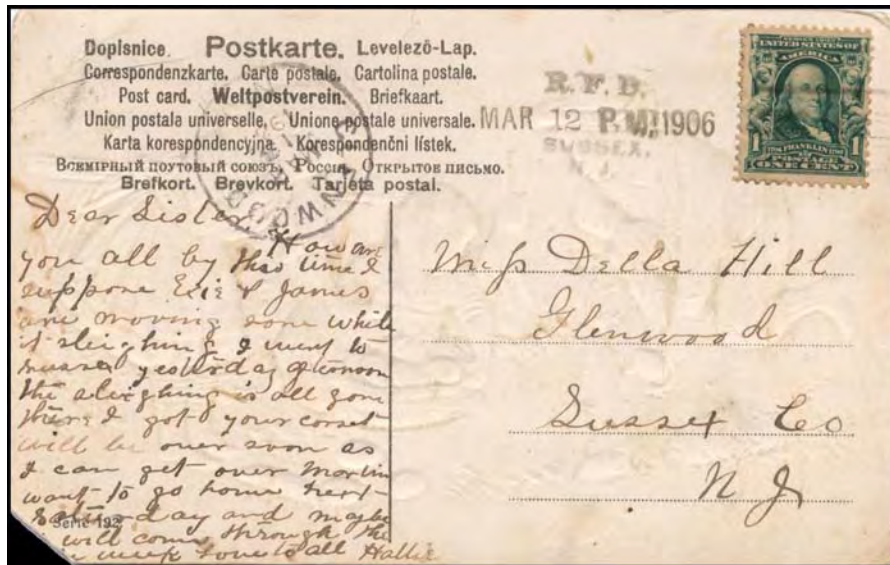 Dopisnice. Postkarte. Levelező-Lap.
Correspondenzkarte. Carte postale. Cartolina postale.
Post card. Weltpostverein. Briefkaart.
Union postale universelle. Unione postale universale.
Karta korespondencyjna. Korespondenční lístek.
Всемірный почтовый союзъ Россія. Открытое письмо.
Brefkort. Brevkort. Tarjeta postal.
R.F.D.
MAR 12 P.M. 1906
SUSSEX,
N. J.
UNITED STATES OF
AMERICA
FRANKLIN
1 POSTAGE 1
ONE CENT
Dear Sister,
How are
you all by this time I
suppose & James
are moving some while
it sleighing I went to
Sussex yesterday afternoon
the sleighing is all gone
there I got your corset
will be over soon as
I can get over
want to go home next
Saturday and maybe
will come through the
week love to all Hallie
Serie 192
Miss Della Hill
Glenwood
Sussex Co
N J